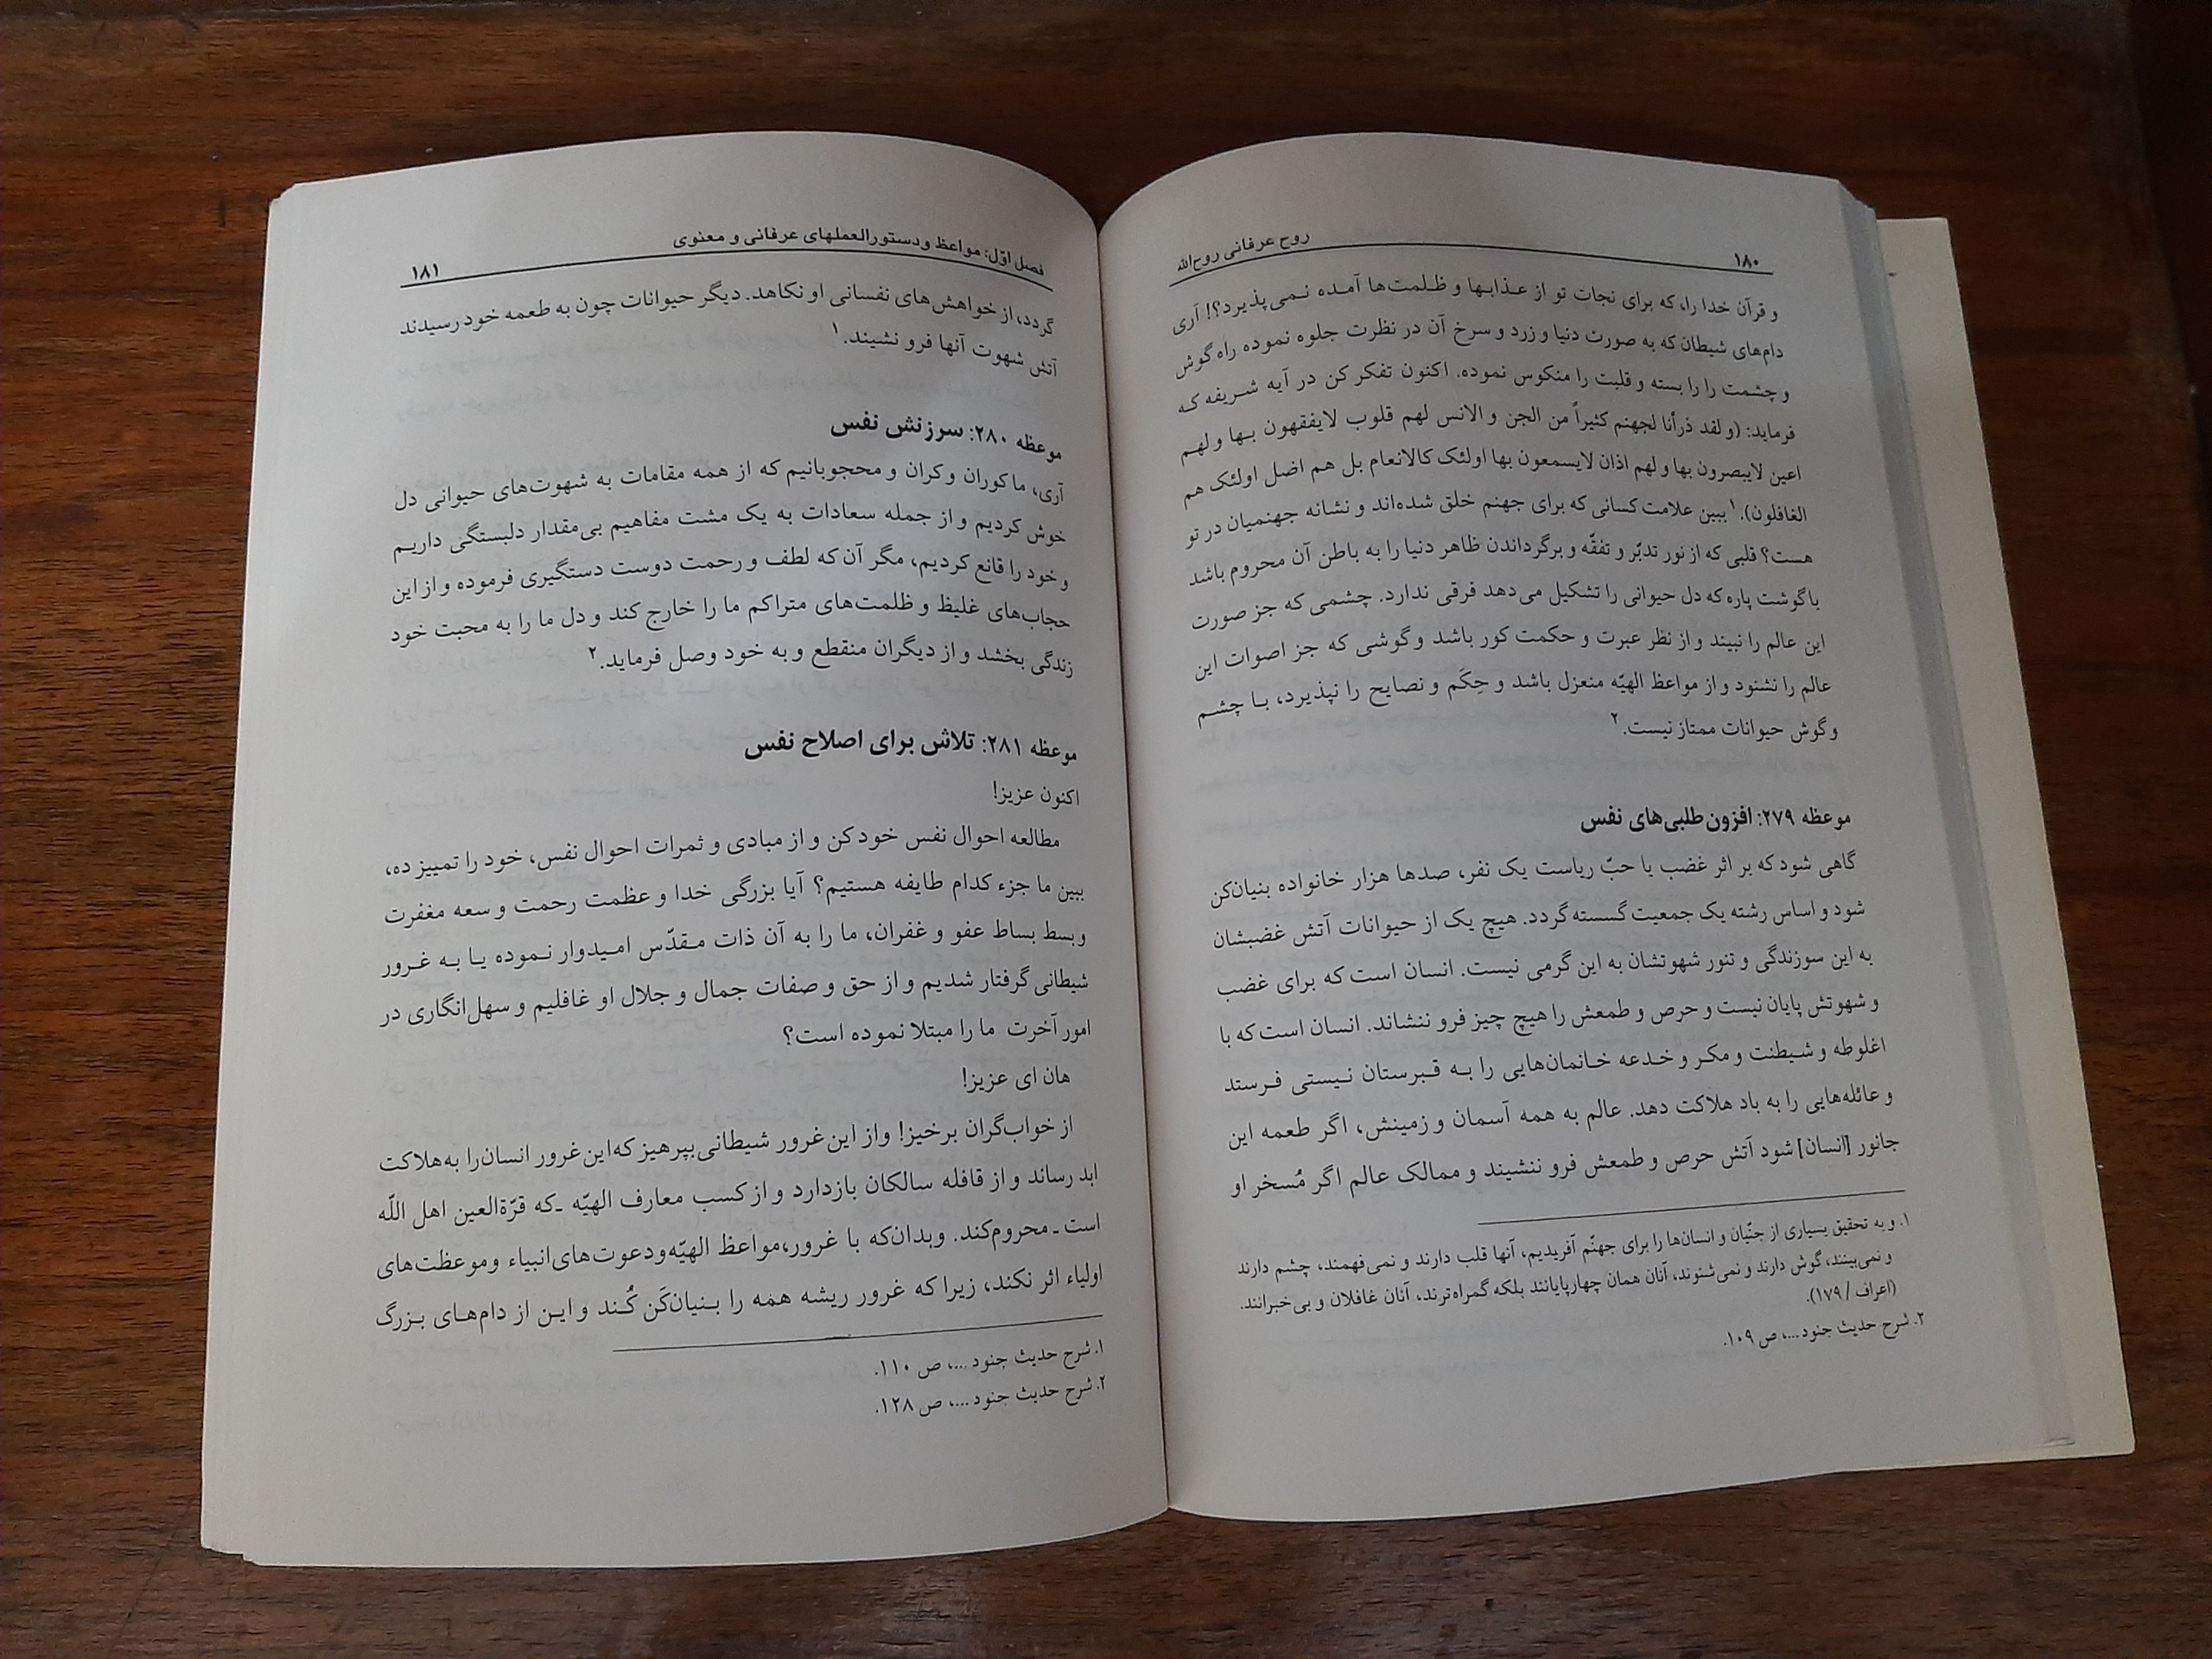 ۱۸۰
روح عرفانی روح‌الله
و قرآن خدا را، که برای نجات تو از عذابها و ظلمت‌ها آمده نمی‌پذیرد؟! آری
دام‌های شیطان که به صورت دنیا و زرد و سرخ آن در نظرت جلوه نموده راه گوش
و چشمت را را بسته و قلبت را منکوس نموده. اکنون تفکر کن در آیه شریفه که
فرماید: (و لقد ذرأنا لجهنم کثیراً من الجن و الانس لهم قلوب لایفقهون بها و لهم
اعین لایبصرون بها و لهم اذان لایسمعون بها اولئک کالانعام بل هم اضل اولئک هم
الغافلون).۱ ببین علامت کسانی که برای جهنم خلق شده‌اند و نشانه جهنمیان در تو
هست؟ قلبی که از نور تدبّر و تفقّه و برگرداندن ظاهر دنیا را به باطن آن محروم باشد
با گوشت پاره که دل حیوانی را تشکیل می‌دهد فرقی ندارد. چشمی که جز صورت
این عالم را نبیند و از نظر عبرت و حکمت کور باشد و گوشی که جز اصوات این
عالم را نشنود و از مواعظ الهیّه منعزل باشد و حِکَم و نصایح را نپذیرد، با چشم
و گوش حیوانات ممتاز نیست.۲
موعظه ۲۷۹: افزون‌طلبی‌های نفس
گاهی شود که بر اثر غضب یا حبّ ریاست یک نفر، صدها هزار خانواده بنیان‌کن
شود و اساس رشته یک جمعیت گسسته گردد. هیچ یک از حیوانات آتش غضبشان
به این سوزندگی و تنور شهوتشان به این گرمی نیست. انسان است که برای غضب
و شهوتش پایان نیست و حرص و طمعش را هیچ چیز فرو ننشاند. انسان است که با
اغلوطه و شیطنت و مکر و خدعه خانمان‌هایی را به قبرستان نیستی فرستد
و عائله‌هایی را به باد هلاکت دهد. عالم به همه آسمان و زمینش، اگر طعمه این
جانور [انسان] شود آتش حرص و طمعش فرو ننشیند و ممالک عالم اگر مُسخر او
۱. و به تحقیق بسیاری از جنّیان و انسان‌ها را برای جهنّم آفریدیم، آنها قلب دارند و نمی‌فهمند، چشم دارند
و نمی‌بینند، گوش دارند و نمی‌شنوند، آنان همان چهارپایانند بلکه گمراه‌ترند، آنان غافلان و بی‌خبرانند.
(اعراف / ۱۷۹).
۲. شرح حدیث جنود...، ص ۱۰۹.
فصل اوّل: مواعظ و دستورالعملهای عرفانی و معنوی
۱۸۱
گردد، از خواهش‌های نفسانی او نکاهد. دیگر حیوانات چون به طعمه خود رسیدند
آتش شهوت آنها فرو نشیند.۱
موعظه ۲۸۰: سرزنش نفس
آری، ما کوران و کران و محجوبانیم که از همه مقامات به شهوت‌های حیوانی دل
خوش کردیم و از جمله سعادات به یک مشت مفاهیم بی‌مقدار دلبستگی داریم
و خود را قانع کردیم، مگر آن که لطف و رحمت دوست دستگیری فرموده و از این
حجاب‌های غلیظ و ظلمت‌های متراکم ما را خارج کند و دل ما را به محبت خود
زندگی بخشد و از دیگران منقطع و به خود وصل فرماید.۲
موعظه ۲۸۱: تلاش برای اصلاح نفس
اکنون عزیز!
مطالعه احوال نفس خود کن و از مبادی و ثمرات احوال نفس، خود را تمییز ده،
ببین ما جزء کدام طایفه هستیم؟ آیا بزرگی خدا و عظمت رحمت و سعه مغفرت
و بسط بساط عفو و غفران، ما را به آن ذات مقدّس امیدوار نموده یا به غرور
شیطانی گرفتار شدیم و از حق و صفات جمال و جلال او غافلیم و سهل‌انگاری در
امور آخرت ما را مبتلا نموده است؟
هان ای عزیز!
از خواب‌گران برخیز! واز این غرور شیطانی بپرهیز که‌این غرور انسان‌را به‌هلاکت
ابد رساند و از قافله سالکان بازدارد و از کسب معارف الهیّه ـ‌که قرّةالعین اهل اللّه
است ـ محروم‌کند. وبدان‌که با غرور،مواعظ الهیّه‌ودعوت‌های‌انبیاء وموعظت‌های
اولیاء اثر نکند، زیرا که غرور ریشه همه را بنیان‌کَن کُند و این از دام‌های بزرگ
۱. شرح حدیث جنود ...، ص ۱۱۰.
۲. شرح حدیث جنود ...، ص ۱۲۸.